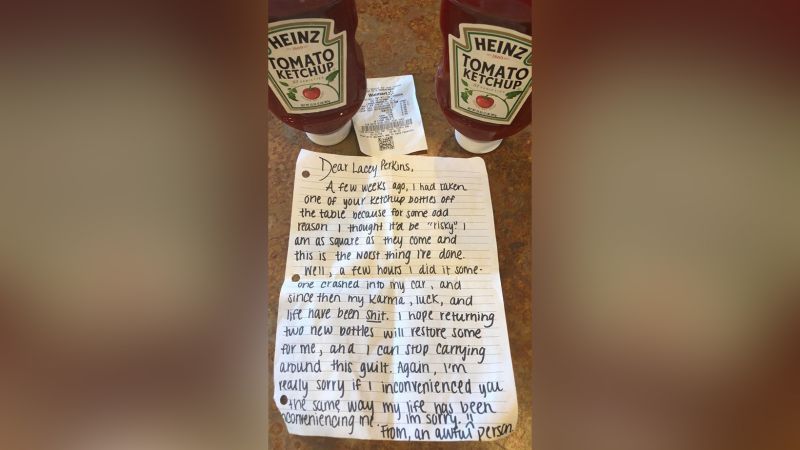 HEINZ
TOMATO
KETCHUP
HEINZ
TOMATO
KETCHUP
Walmart
Dear Lacey Perkins,
A few weeks ago, I had taken
one of your ketchup bottles off
the table because for some odd
reason I thought it'd be "risky" I
am as square as they come and
this is the worst thing I've done.
Well, a few hours I did it some-
one crashed into my car, and
since then my karma, luck, and
life have been shit. I hope returning
two new bottles will restore some
for me, and I can stop carrying
around this guilt. Again, I'm
really sorry if I inconvenienced you
the same way my life has been
inconveniencing me. I'm sorry. !!
From, an awful person